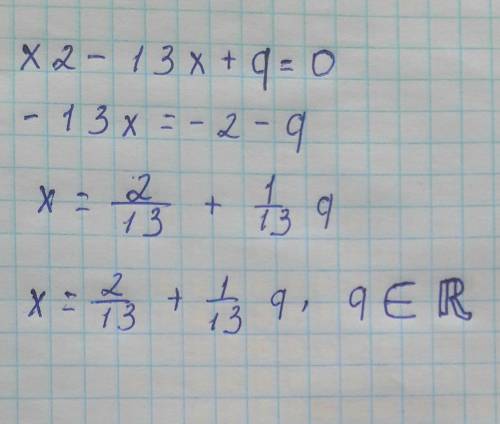 x2 - 13x + q = 0
- 13x = -2 - q
x = 2/13 + 1/13 q
x = 2/13 + 1/13 q, q ∈ ℝ